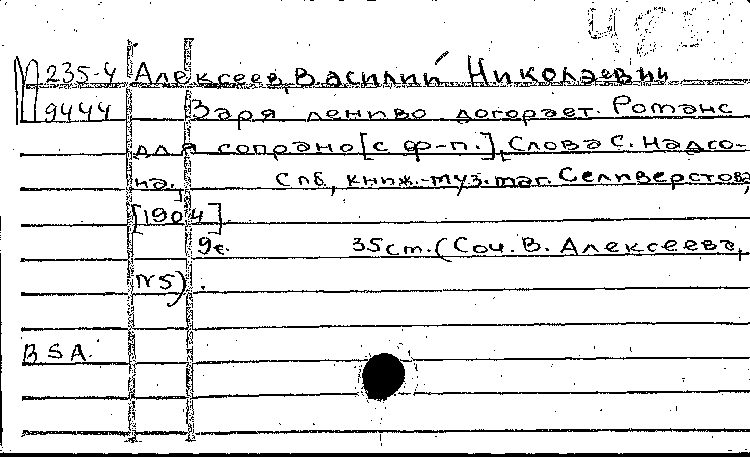 М 235-4 Алексеев, Василий Николаевич
9444 Заря лениво догорает. Романс
для сопрано [с ф-п.], Слова С. Надсо-
на.] Спб, книж.-муз. маг. Селиверстова,
[1904]
9с. 35 cm. (Соч. В. Алексеева,
№5).
BSA.